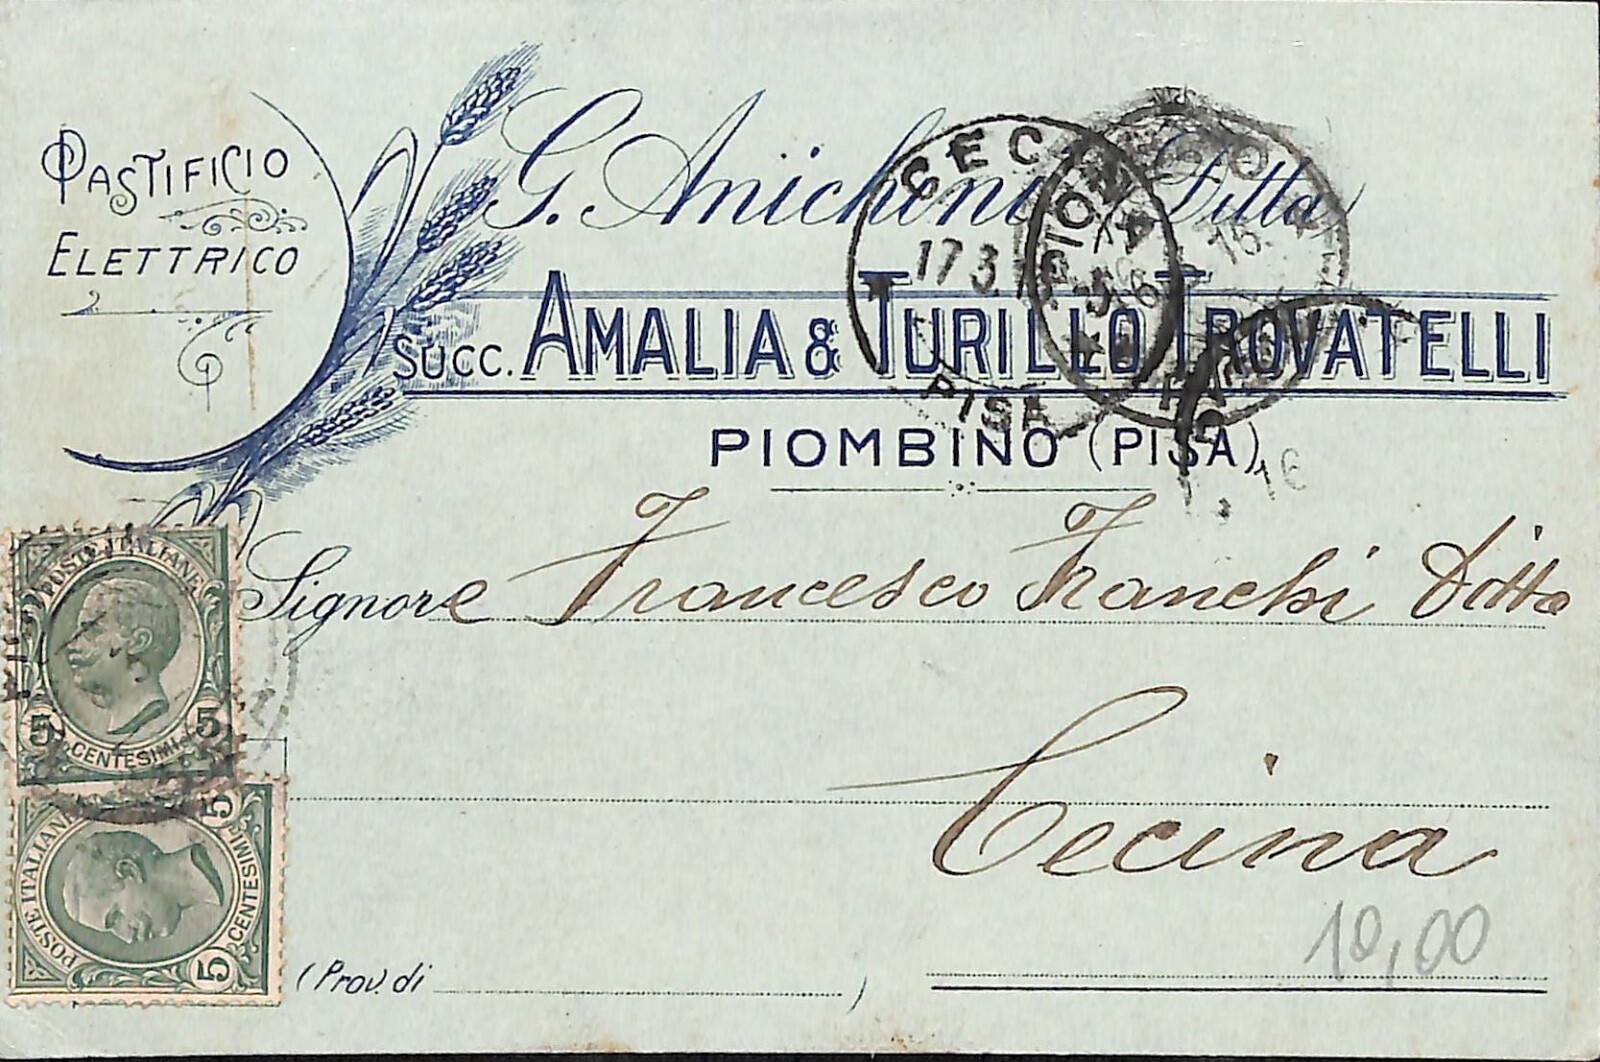 PASTIFICIO
ELETTRICO
G. Anichini Ditta
SUCC. AMALIA & TURILLO TROVATELLI
PIOMBINO (PISA)
CEC
17 3
PISA
PIOMBINO
16
Signore Francesco Franchi Ditta
Cecina
(Prov. di )
10,00
POSTE ITALIANE
5 5
CENTESIMI
POSTE ITALIANE
5 5
CENTESIMI